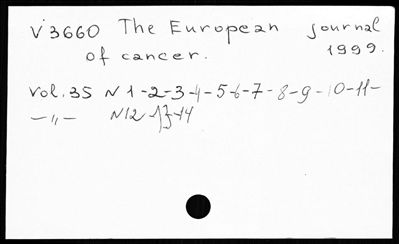 V3660 The European journal
of cancer. 1999.
Vol. 35 N 1-2-3-4-5-6-7-8-9-10-11-
— „ — N12-13-14